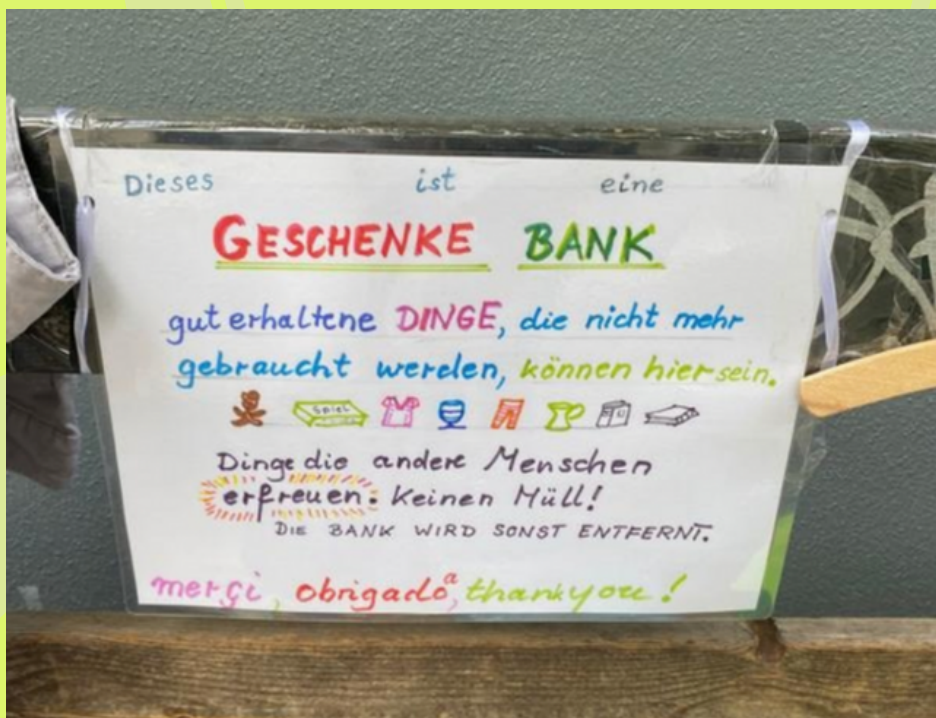 Dieses ist eine
GESCHENKE BANK
gut erhaltene DINGE, die nicht mehr
gebraucht werden, können hier sein.
SPIEL
Dinge die andere Menschen
erfreuen. Keinen Müll!
DIE BANK WIRD SONST ENTFERNT.
merçi, obrigadoª, thank you!